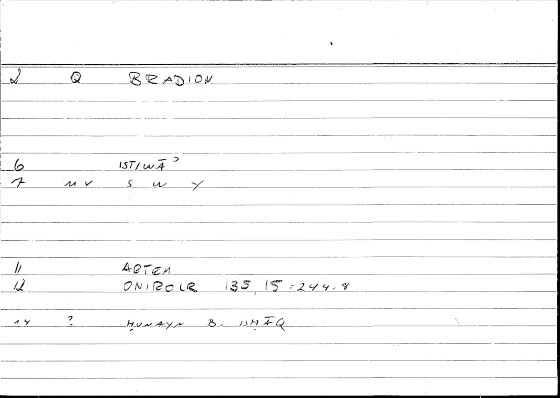 2 Q BRADION
6 ISTIWĀʾ
7 MV S W Y
11 ARTEM
12 ONIROCR 135,15 = 244.8
14 ? ḤUNAYN B. ISḤĀQ